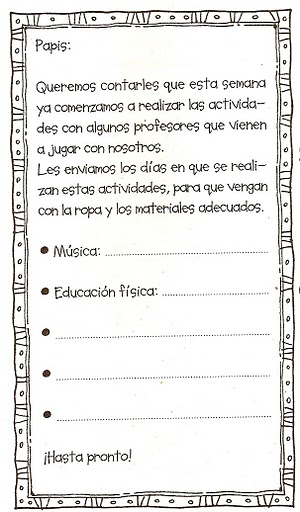 Papis:
Queremos contarles que esta semana
ya comenzamos a realizar las activida-
des con algunos profesores que vienen
a jugar con nosotros.
Les enviamos los días en que se reali-
zan estas actividades, para que vengan
con la ropa y los materiales adecuados.
• Música: ..........................................
• Educación física: ...........................
• ......................................................
• ......................................................
• ......................................................
¡Hasta pronto!